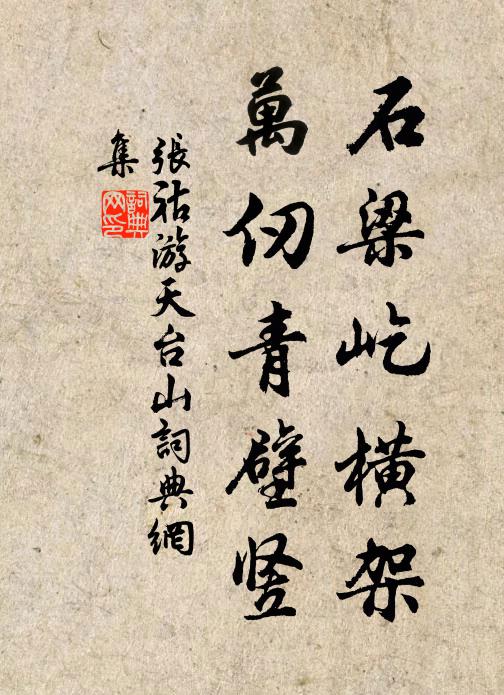 石梁屹橫架
萬仞青壁竖
張祜游天台山詞典網
集
詞典
网印